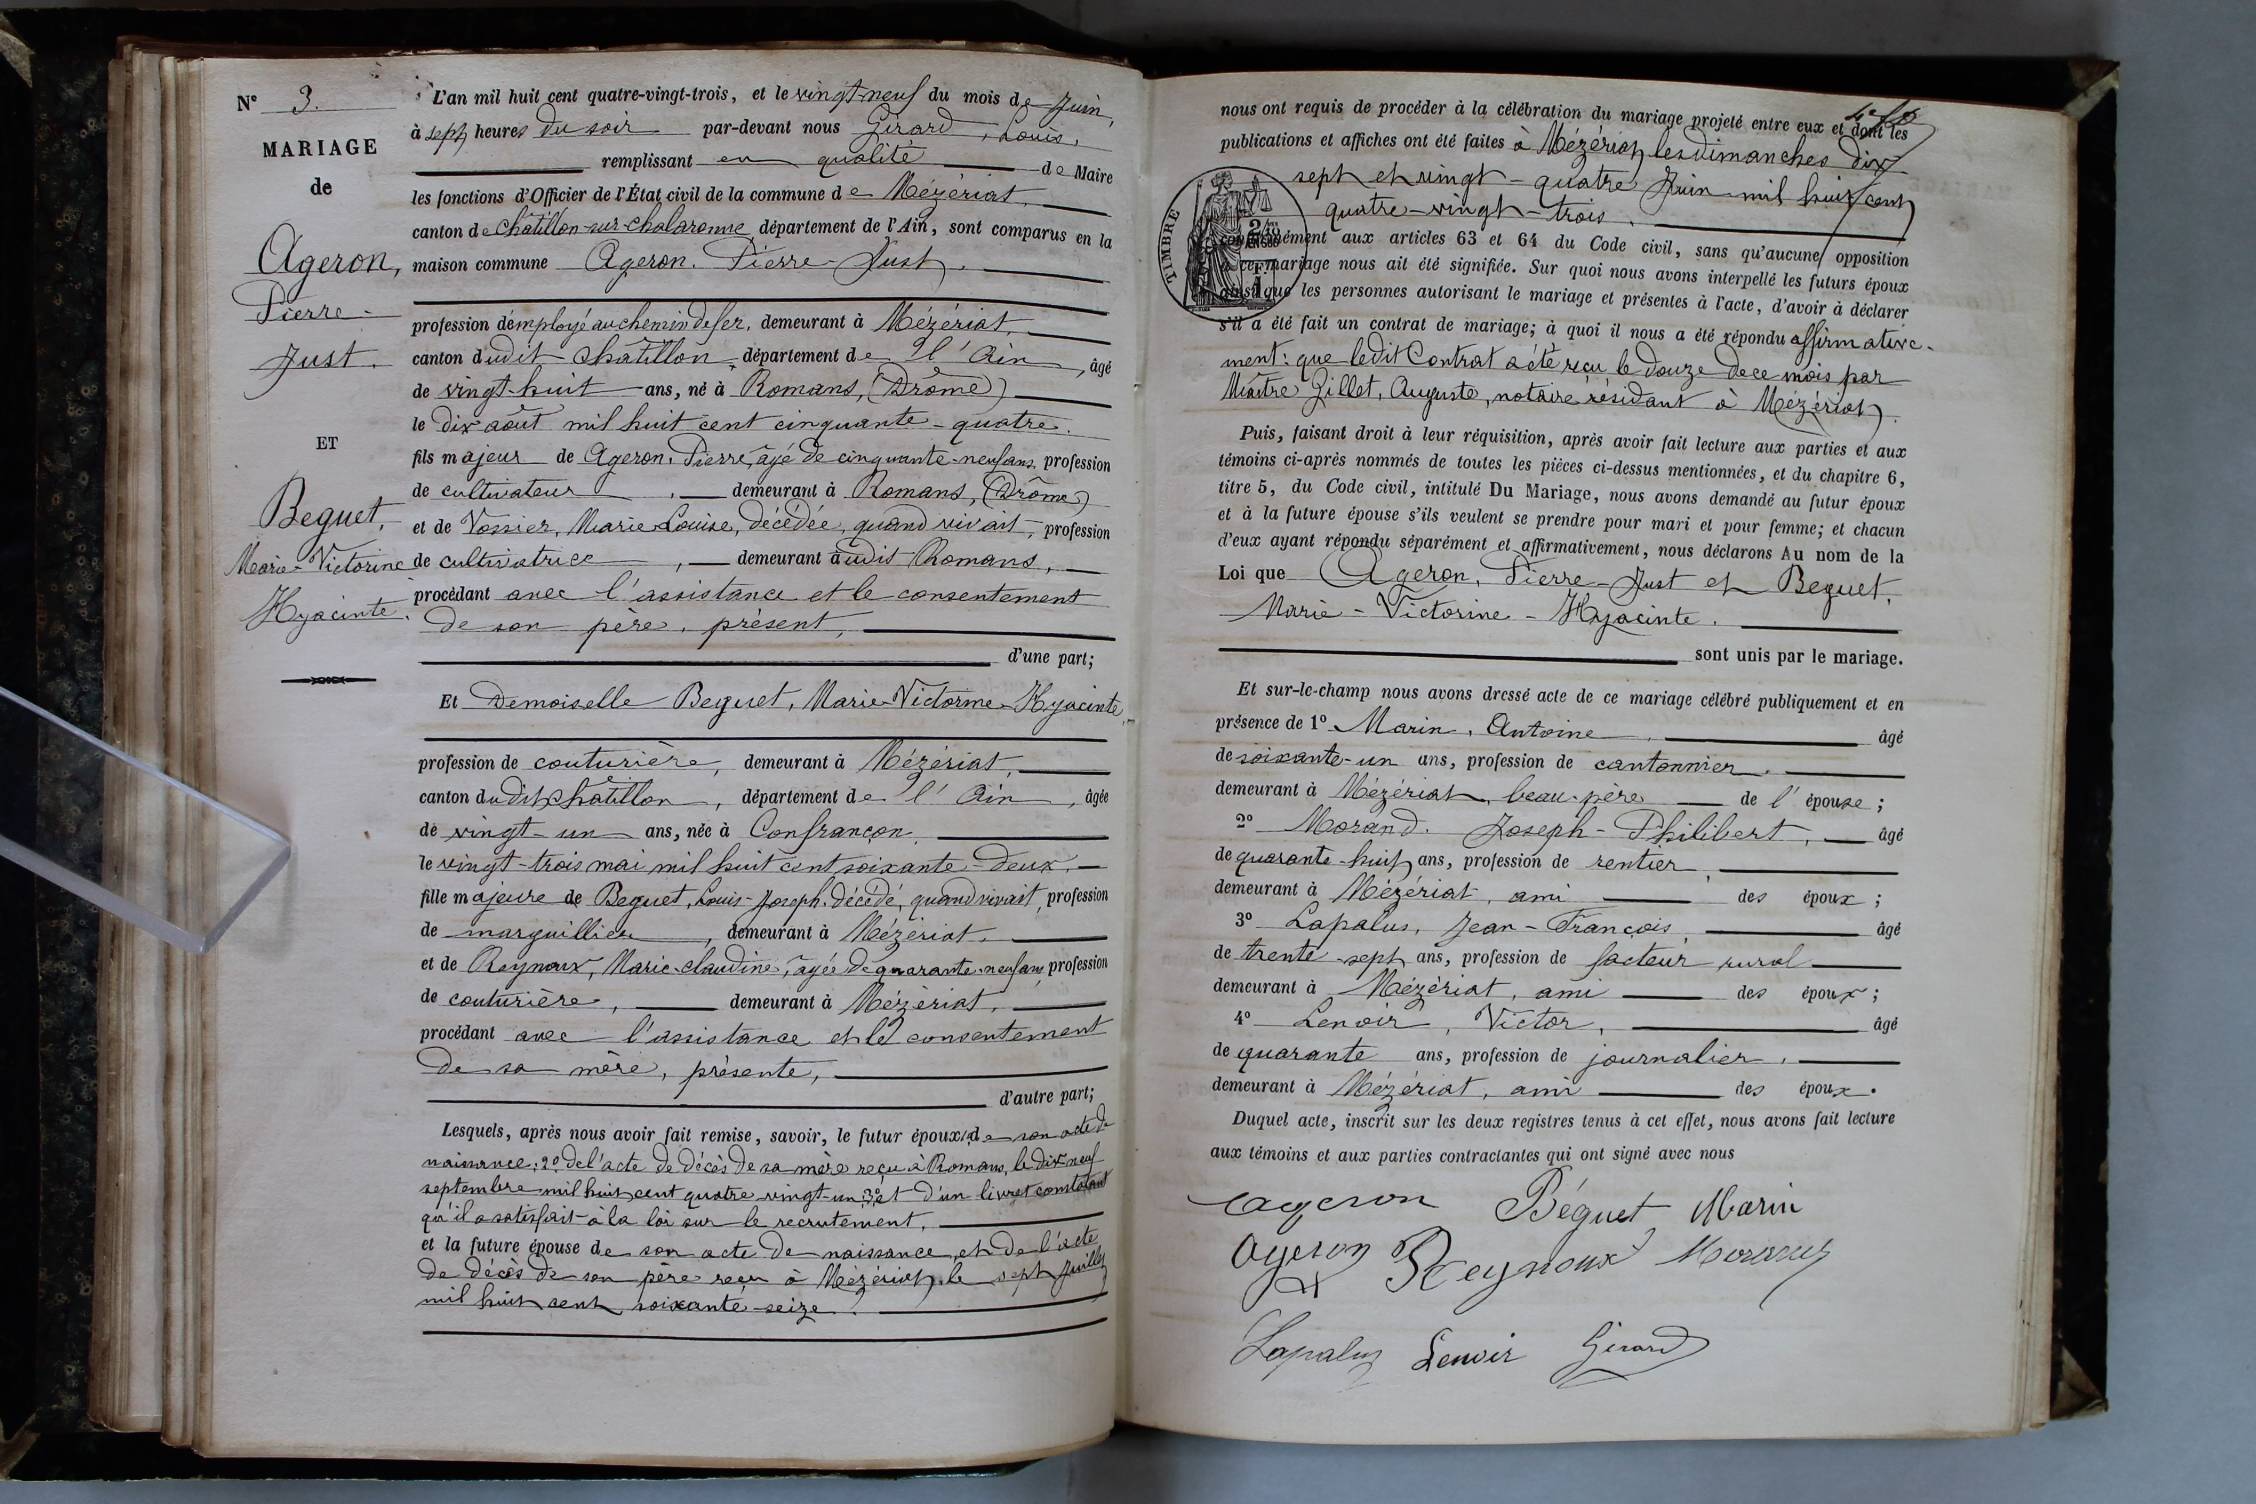 N° 3.
MARIAGE
de
Ageron,
Pierre-
Just.
ET
Beguet,
Marie-Victorine
Hyacinte.
L'an mil huit cent quatre-vingt-trois, et le vingt-neuf du mois de Juin,
à sept heures du soir par-devant nous Girard, Louis,
remplissant en qualité de Maire
les fonctions d'Officier de l'État civil de la commune de Mézériat,
canton de Chatillon-sur-Chalaronne, département de l'Ain, sont comparus en la
maison commune Ageron. Pierre-Just,
profession d'employé au chemin de fer, demeurant à Mézériat,
canton dudit Chatillon, département de l'Ain, âgé
de vingt-huit ans, né à Romans, (Drôme)
le dix août mil huit cent cinquante-quatre.
fils majeur de Ageron, Pierre, âgé de cinquante-neuf ans, profession
de cultivateur, demeurant à Romans, (Drôme)
et de Vossier, Marie-Louise, décédée, quand vivait, profession
de cultivatrice, demeurant audit Romans,
procédant avec l'assistance et le consentement
de son père, présent,
d'une part;
Et Demoiselle Beguet, Marie-Victorine-Hyacinte,
profession de couturière, demeurant à Mézériat,
canton dudit Chatillon, département de l'Ain, âgée
de vingt-un ans, née à Confrançon
le vingt-trois mai mil huit cent soixante-deux,
fille majeure de Beguet, Louis-Joseph, décédé, quand vivait, profession
de marguillier, demeurant à Mézériat,
et de Reynoux, Marie-Claudine, âgée de quarante-neuf ans, profession
de couturière, demeurant à Mézériat,
procédant avec l'assistance et le consentement
de sa mère, présente,
d'autre part;
Lesquels, après nous avoir fait remise, savoir, le futur époux 1° de son acte de
naissance; 2° de l'acte de décès de sa mère reçu à Romans, le dix neuf
septembre mil huit cent quatre vingt-un 3° et d'un livret constatant
qu'il a satisfait à la loi sur le recrutement,
et la future épouse de son acte de naissance, et de l'acte
de décès de son père reçu à Mézériat, le sept Juillet
mil huit cent soixante-seize.
nous ont requis de procéder à la célébration du mariage projeté entre eux et dont les
publications et affiches ont été faites à Mézériat, les dimanches dix
sept et vingt-quatre Juin mil huit cent
quatre-vingt-trois.
conformément aux articles 63 et 64 du Code civil, sans qu'aucune opposition
à ce mariage nous ait été signifiée. Sur quoi nous avons interpellé les futurs époux
ainsi que les personnes autorisant le mariage et présentes à l'acte, d'avoir à déclarer
s'il a été fait un contrat de mariage; à quoi il nous a été répondu affirmative-
ment: que ledit Contrat a été reçu le douze de ce mois par
Maître Gillet, Auguste, notaire résidant à Mézériat.
TIMBRE
Puis, faisant droit à leur réquisition, après avoir fait lecture aux parties et aux
témoins ci-après nommés de toutes les pièces ci-dessus mentionnées, et du chapitre 6,
titre 5, du Code civil, intitulé Du Mariage, nous avons demandé au futur époux
et à la future épouse s'ils veulent se prendre pour mari et pour femme; et chacun
d'eux ayant répondu séparément et affirmativement, nous déclarons Au nom de la
Loi que Ageron, Pierre-Just et Beguet,
Marie-Victorine-Hyacinte.
sont unis par le mariage.
Et sur-le-champ nous avons dressé acte de ce mariage célébré publiquement et en
présence de 1° Marin, Antoine, âgé
de soixante-un ans, profession de cantonnier,
demeurant à Mézériat, beau-père de l'épouse;
2° Morand. Joseph-Philibert, âgé
de quarante-huit ans, profession de rentier,
demeurant à Mézériat, ami des époux;
3° Lapalus, Jean-François, âgé
de trente-sept ans, profession de facteur rural
demeurant à Mézériat, ami des époux;
4° Lenoir, Victor, âgé
de quarante ans, profession de journalier,
demeurant à Mézériat, ami des époux.
Duquel acte, inscrit sur les deux registres tenus à cet effet, nous avons fait lecture
aux témoins et aux parties contractantes qui ont signé avec nous
Ageron Béguet Marin
Ageron Reynoux Morand
Lapalus Lenoir Girard